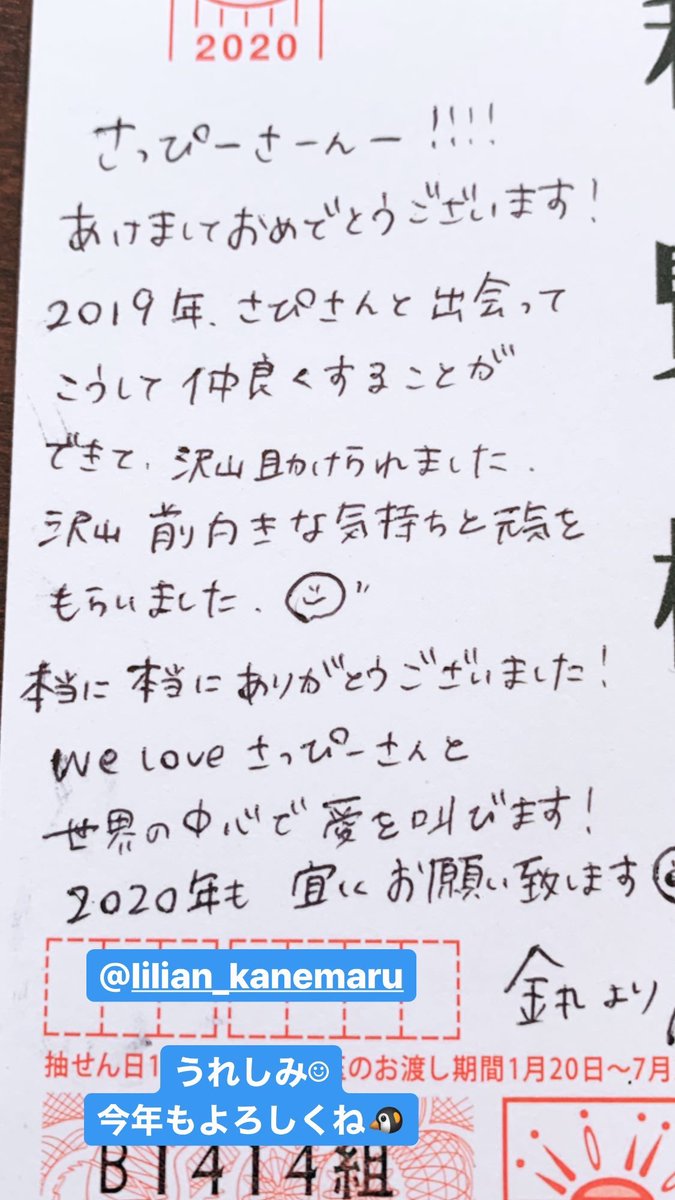 2020
さっぴーさーんー!!!!
あけましておめでとうございます!
2019年、さぴさんと出会って
こうして仲良くすることが
できて、沢山助けられました.
沢山 前向きな気持ちと元気を
もらいました.
本当に 本当に ありがとうございました!
we love さっぴーさんと
世界の中心で 愛を叫びます!
2020年も 宜しくお願い致します
金丸より
@lilian_kanemaru
抽せん日1
のお渡し期間1月20日〜7月
うれしみ☺
今年もよろしくね🐧
B1414組